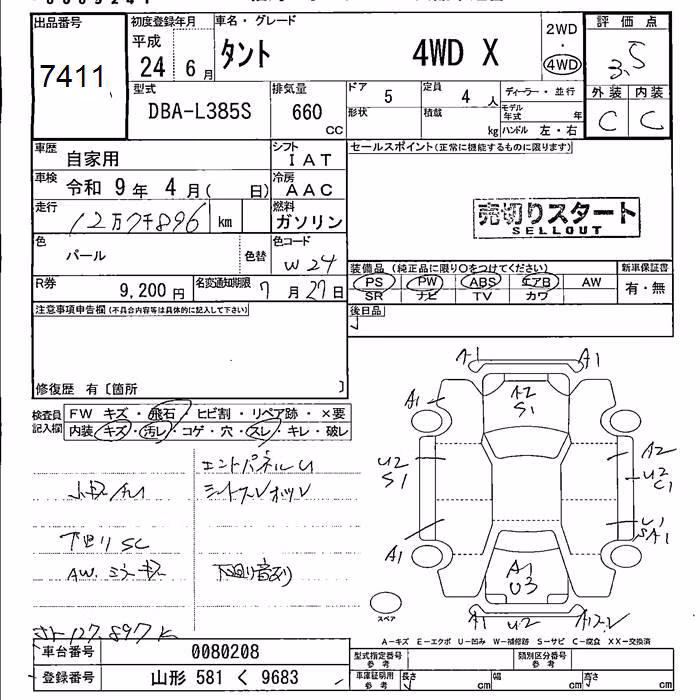 出品番号
7411
初度登録年月
平成
24 6月
車名・グレード
タント 4WD X
2WD
・
4WD
評価点
3.5
外装 内装
C C
型式
DBA-L385S
排気量
660
CC
ドア 5
定員 4 人
ディーラー・並行
形状
積載 kg
モデル年式 年
ハンドル 左・右
車歴 自家用
シフト IAT
車検 令和 9年 4月( 日)
冷房 AAC
走行 12万7千896 km
燃料 ガソリン
色 パール 色替
色コード W24
R券 9,200 円
名変通知期限 7月27日
セールスポイント(正常に機能するものに限ります)
売切りスタート
SELLOUT
装備品 (純正品に限り○をつけてください)
新車保証書
PS PW ABS エアB AW
SR ナビ TV カワ
有・無
後日品
注意事項申告欄(不具合内容等は具体的に記入して下さい)
修復歴 有〔箇所 〕
検査員記入欄
FW キズ・飛石・ヒビ割・リペア跡・×要
内装 キズ・汚レ・コゲ・穴・スレ・キレ・破レ
エンドパネルU
下回りSC
AW.
下廻り
127,897K
A1 A1
A1
A2
S1
U2
S1
A2
U2
C1
A1
U1
SA1
A1
U3
A1 U2
スペア
A-キズ E-エクボ U-凹み W-補修跡 S-サビ C-腐食 XX-交換済
車台番号 0080208
登録番号 山形 581 く 9683
型式指定番号 参考
類別区分番号 参考
車庫証明用 参考
長さ cm 幅 cm 高さ cm